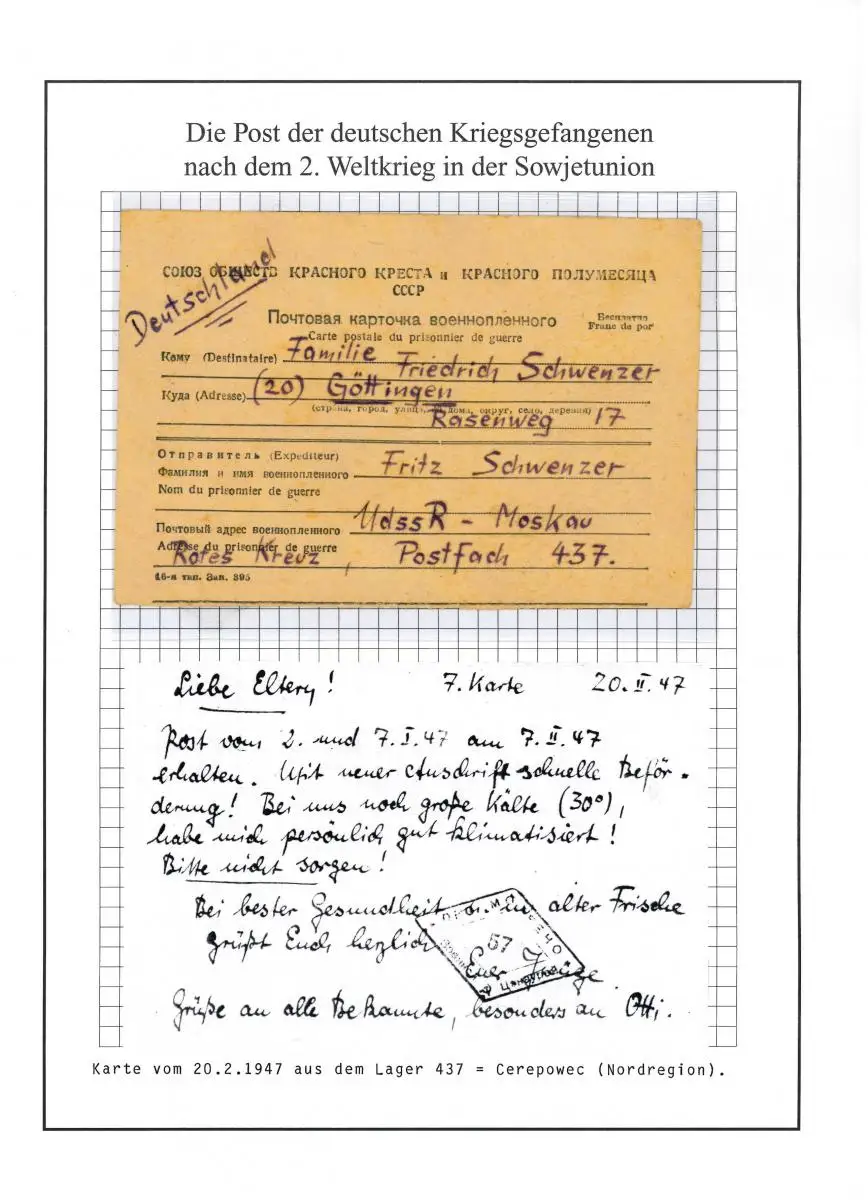 Die Post der deutschen Kriegsgefangenen
nach dem 2. Weltkrieg in der Sowjetunion
Deutschland
СОЮЗ ОБЩЕСТВ КРАСНОГО КРЕСТА и КРАСНОГО ПОЛУМЕСЯЦА
СССР
Почтовая карточка военнопленного
Бесплатно
Franc de por
Carte postale du prisonnier de guerre
Кому (Destinataire) Familie
Friedrich Schwenzer
Куда (Adresse) (20) Göttingen
(страна, город, улица, дома, округ, село, деревня)
Rasenweg 17
Отправитель (Expediteur)
Фамилия и имя военнопленного Fritz Schwenzer
Nom du prisonnier de guerre
Почтовый адрес военнопленного UdssR - Moskau
Adresse du prisonnier de guerre
Rotes Kreuz, Postfach 437.
16-я тип. Зак. 395
Liebe Eltern! 7. Karte 20. II. 47
Post vom 2. und 7. I. 47 am 7. II. 47
erhalten. Mit neuer Anschrift schnelle Beför-
derung! Bei uns noch große Kälte (30°),
habe mich persönlich gut klimatisiert!
Bitte nicht sorgen!
Bei bester Gesundheit u. in alter Frische
grüßt Euch herzlich
57
Euer
Grüße an alle Bekannte, besonders an Otti.
Karte vom 20.2.1947 aus dem Lager 437 = Cerepowec (Nordregion).